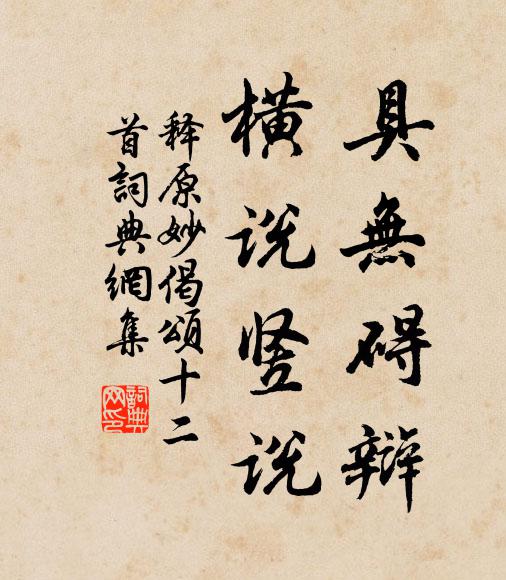 具無碍辯
橫说竖说
释原妙偈頌十二
首詞典網集
詞典
网印